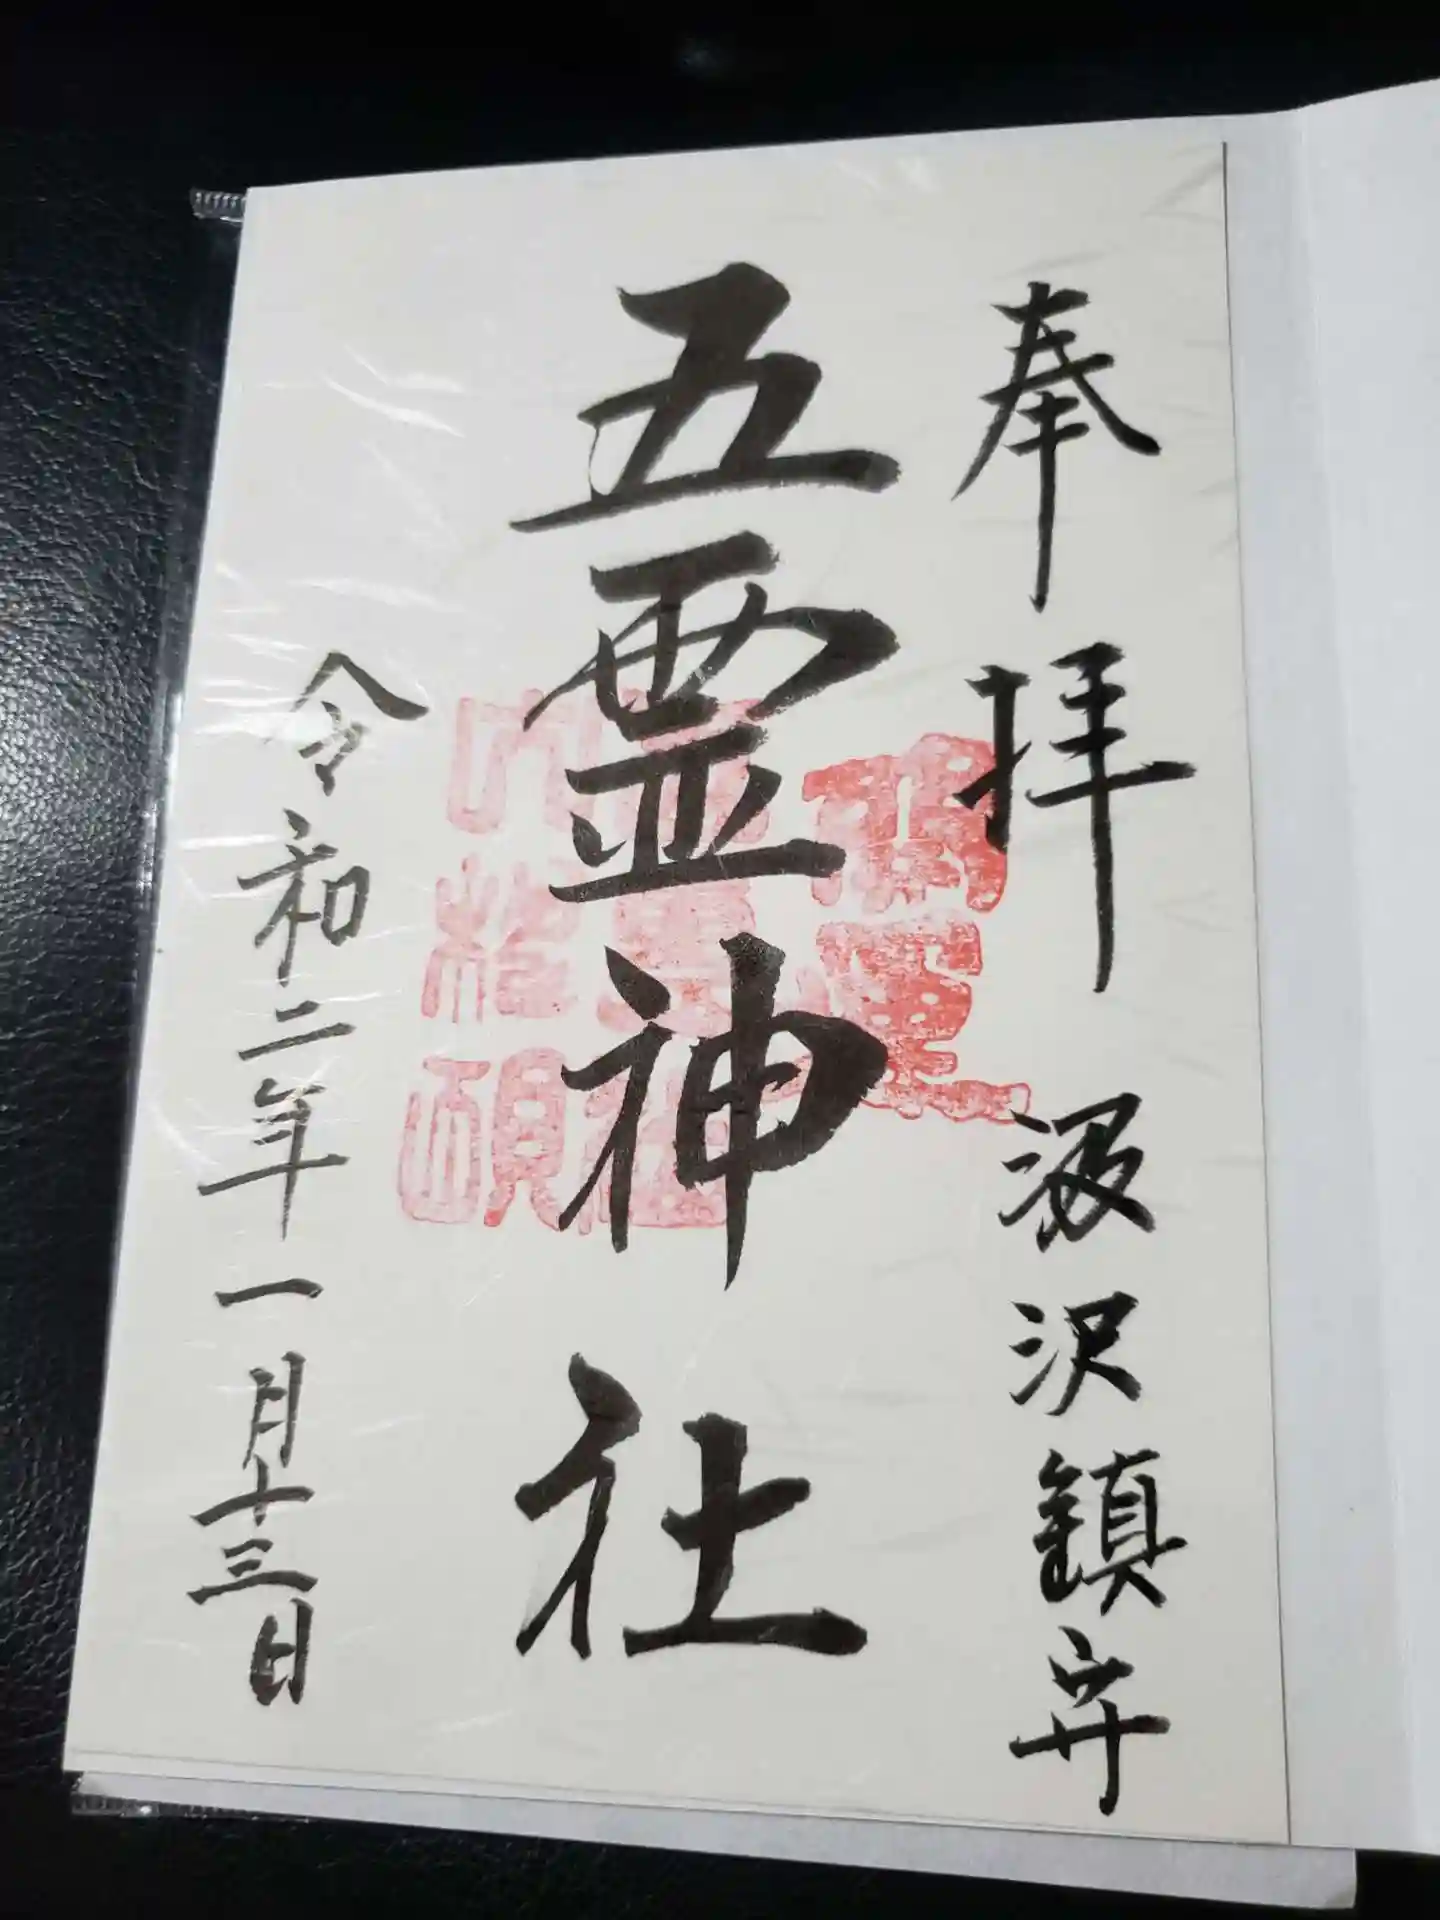 奉拝 汲沢鎮守
五霊神社
令和二年一月十三日